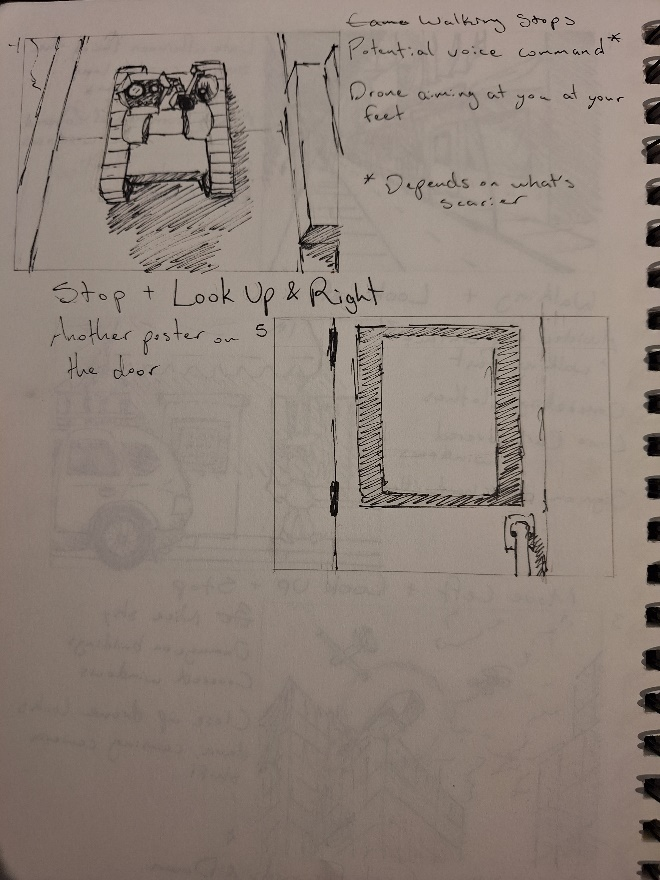 Came Walking Stops
Potential voice command*
Drone aiming at you at your
feet
* Depends on what's
scarier
Stop + Look Up & Right
Another poster on
the door
5